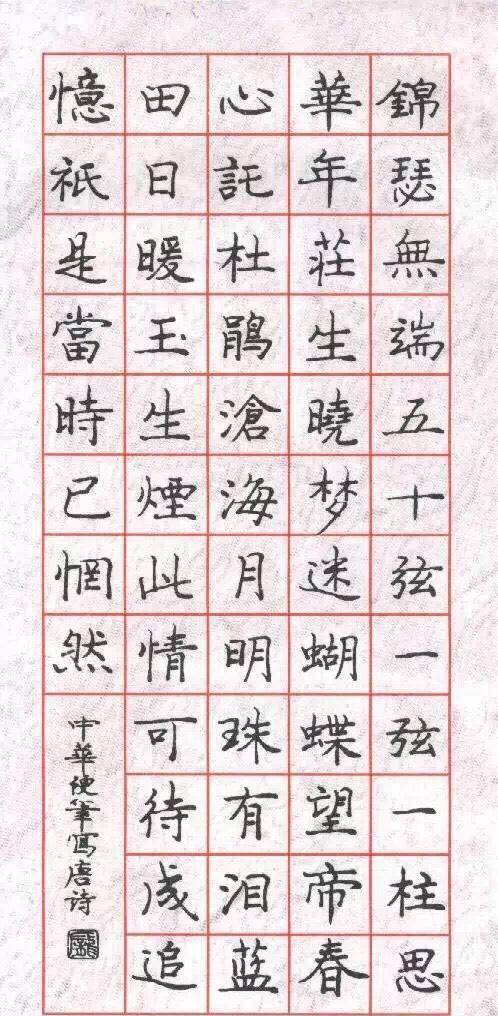 錦瑟無端五十弦一弦一柱思
華年莊生曉梦迷蝴蝶望帝春
心託杜鵑滄海月明珠有泪蓝
田日暖玉生煙此情可待成追
憶祇是當時已惘然
中華硬筆寫唐诗